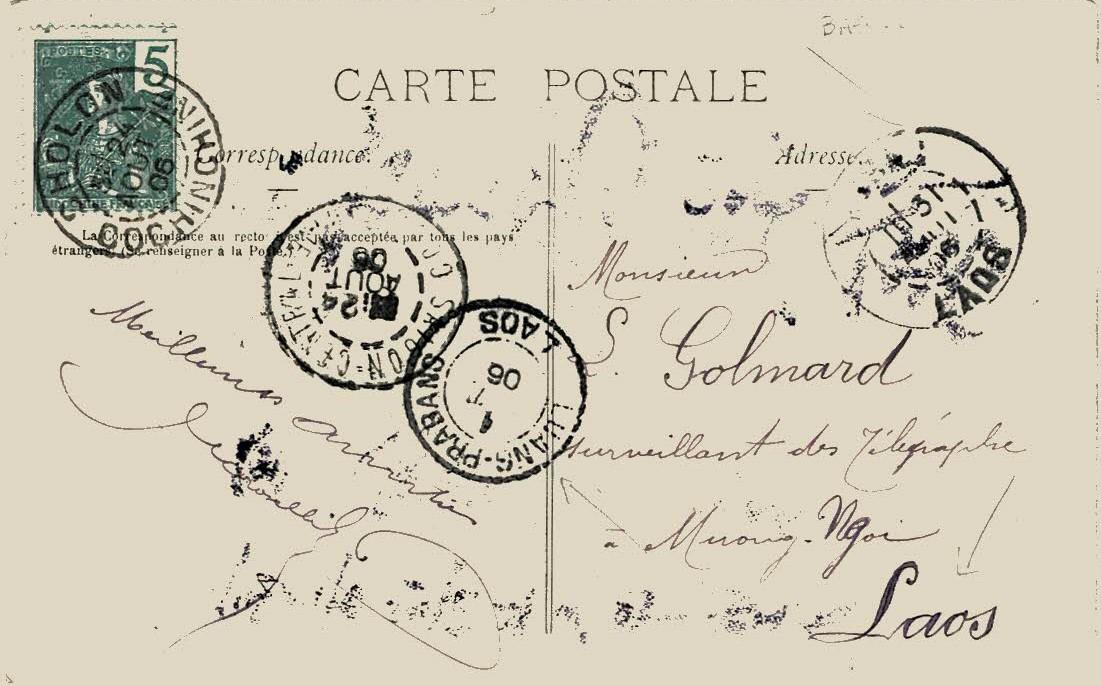 POSTES
5
INDO-CHINE FRANÇAISE
CHOLON COCHINCHINE
24
AOUT
06
CARTE POSTALE
Correspondance.
Adresse
La Correspondance au recto n'est pas acceptée par tous les pays
étrangers. (Se renseigner à la Poste.)
SAIGON-CENTRAL
24
AOUT
06
LUANG-PRABANG LAOS
1
06
31
06
LAOS
Meilleures amitiés
Monsieur
S. Golmard
surveillant des Télégraphe
à Muong-Ngoi
Laos